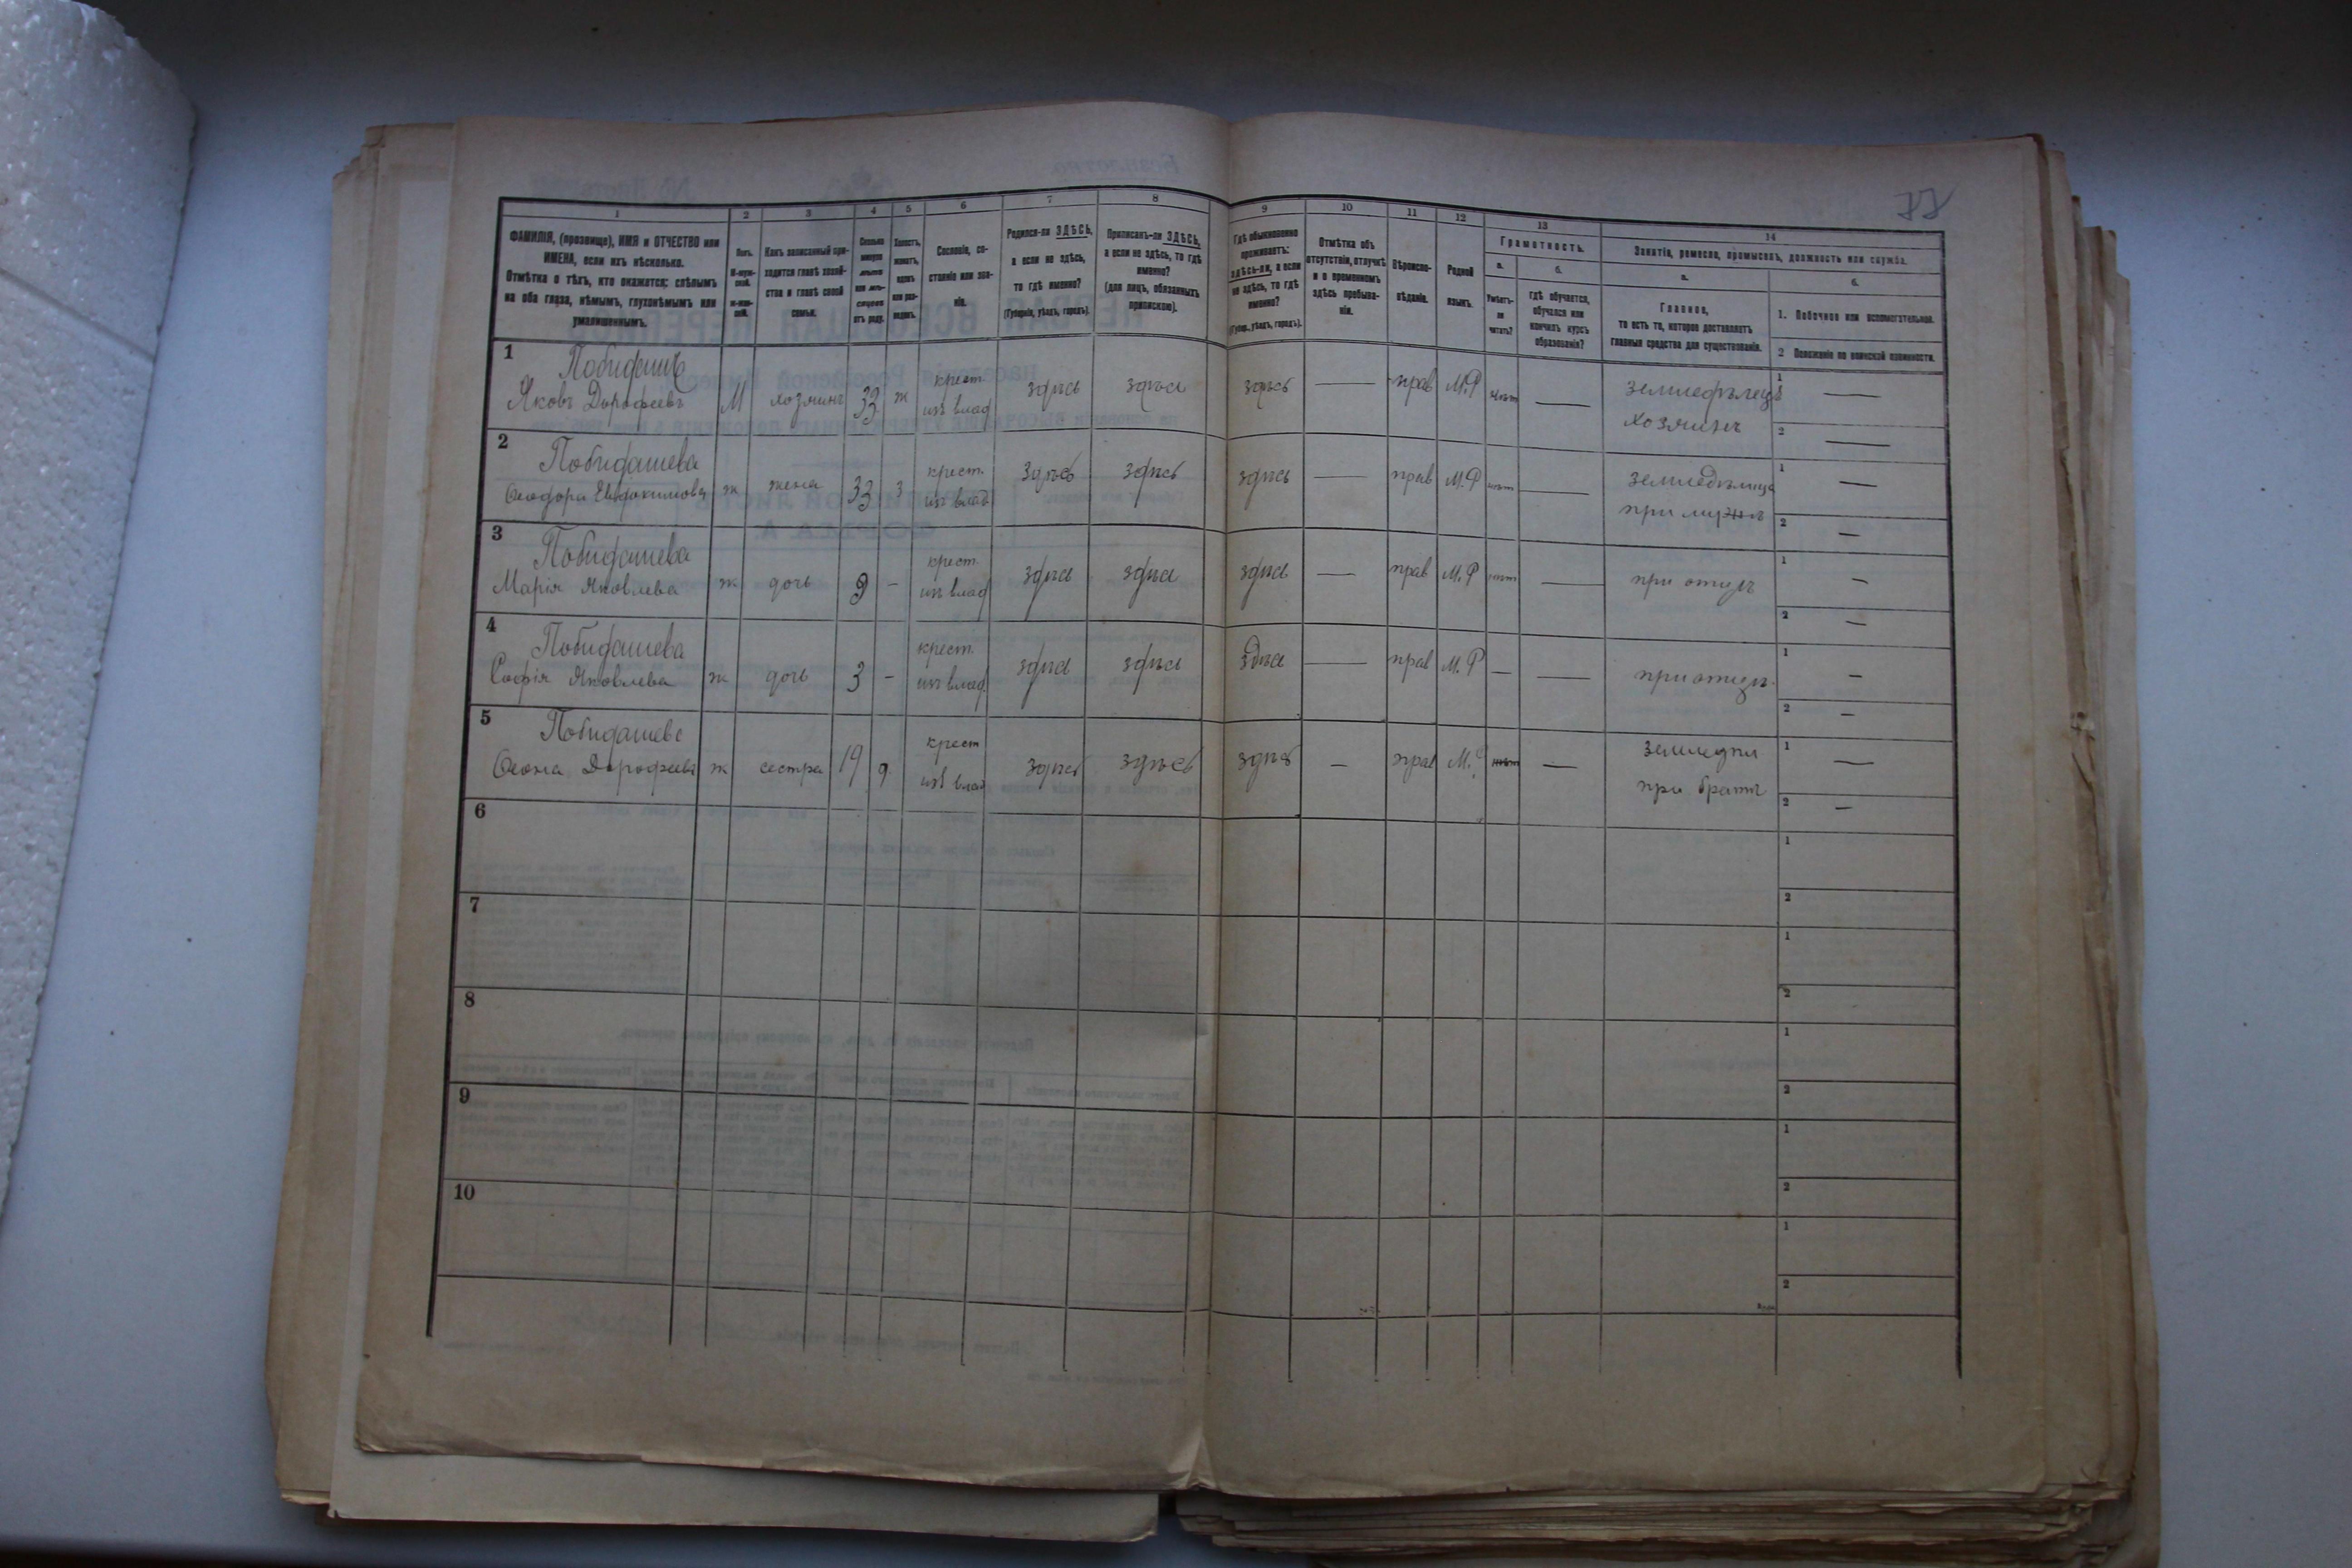 77
1 2 3 4 5 6 7 8 9 10 11 12 13 14
ФАМИЛІЯ, (прозвище), ИМЯ и ОТЧЕСТВО или
ИМЕНА, если ихъ нѣсколько.
Отмѣтка о тѣхъ, кто окажется: слѣпымъ
на оба глаза, нѣмымъ, глухонѣмымъ или
умалишеннымъ.
Полъ.
М-муж-
ской.
Ж-жен-
скій.
Какъ записанный при-
ходится главѣ хозяй-
ства и главѣ своей
семьи.
Сколько
минуло
лѣтъ
или мѣ-
сяцевъ
отъ роду.
Холостъ,
женатъ,
вдовъ
или раз-
веденъ.
Сословіе, со-
стояніе или зва-
ніе.
Родился-ли ЗДѢСЬ,
а если не здѣсь,
то гдѣ именно?
(Губернія, уѣздъ, городъ).
Приписанъ-ли ЗДѢСЬ,
а если не здѣсь, то гдѣ
именно?
(для лицъ, обязанныхъ
припискою).
Гдѣ обыкновенно
проживаетъ:
здѣсь-ли, а если
не здѣсь, то гдѣ
именно?
(Губер., уѣздъ, городъ).
Отмѣтка объ
отсутствіи, отлучкѣ
и о временномъ
здѣсь пребыва-
ніи.
Вѣроиспо-
вѣданіе.
Родной
языкъ.
Грамотность.
а.
Умѣетъ-
ли
читать?
б.
гдѣ обучается,
обучался или
кончилъ курсъ
образованія?
Занятіе, ремесло, промыселъ, должность или служба.
а.
Главное,
то есть то, которое доставляетъ
главныя средства для существованія.
б.
1. Побочное или вспомогательное.
2 Положеніе по воинской повинности.
1 Побидашъ
Яковъ Дорофеевъ М хозяинъ 33 ж крест. изъ влад здѣсь здѣсь здѣсь — прав М.Р нѣт — земледѣлецъ 1 —
хозяинъ 2 —
2 Побидашева
Феодора Евдокимова ж жена 33 з крест. изъ влад здѣсь здѣсь здѣсь — прав М.Р нѣт — земледѣлица 1 —
при мужѣ 2 —
3 Побидашева
Марія Яковлева ж дочь 9 - крест. изъ влад здѣсь здѣсь здѣсь — прав М.Р нѣт — при отцѣ 1 —
2 —
4 Побидашева
Софія Яковлева ж дочь 3 - крест. изъ влад. здѣсь здѣсь здѣсь — прав М.Р — — при отцѣ. 1 —
2 —
5 Побидашева
Дорофеева ж сестра 19 д. крест изъ влад здѣсь здѣсь здѣсь — прав М.Р нѣт — земледѣл 1 —
при братѣ 2 —
6 1
2
7 1
2
8 1
2
9 1
2
10 1
2